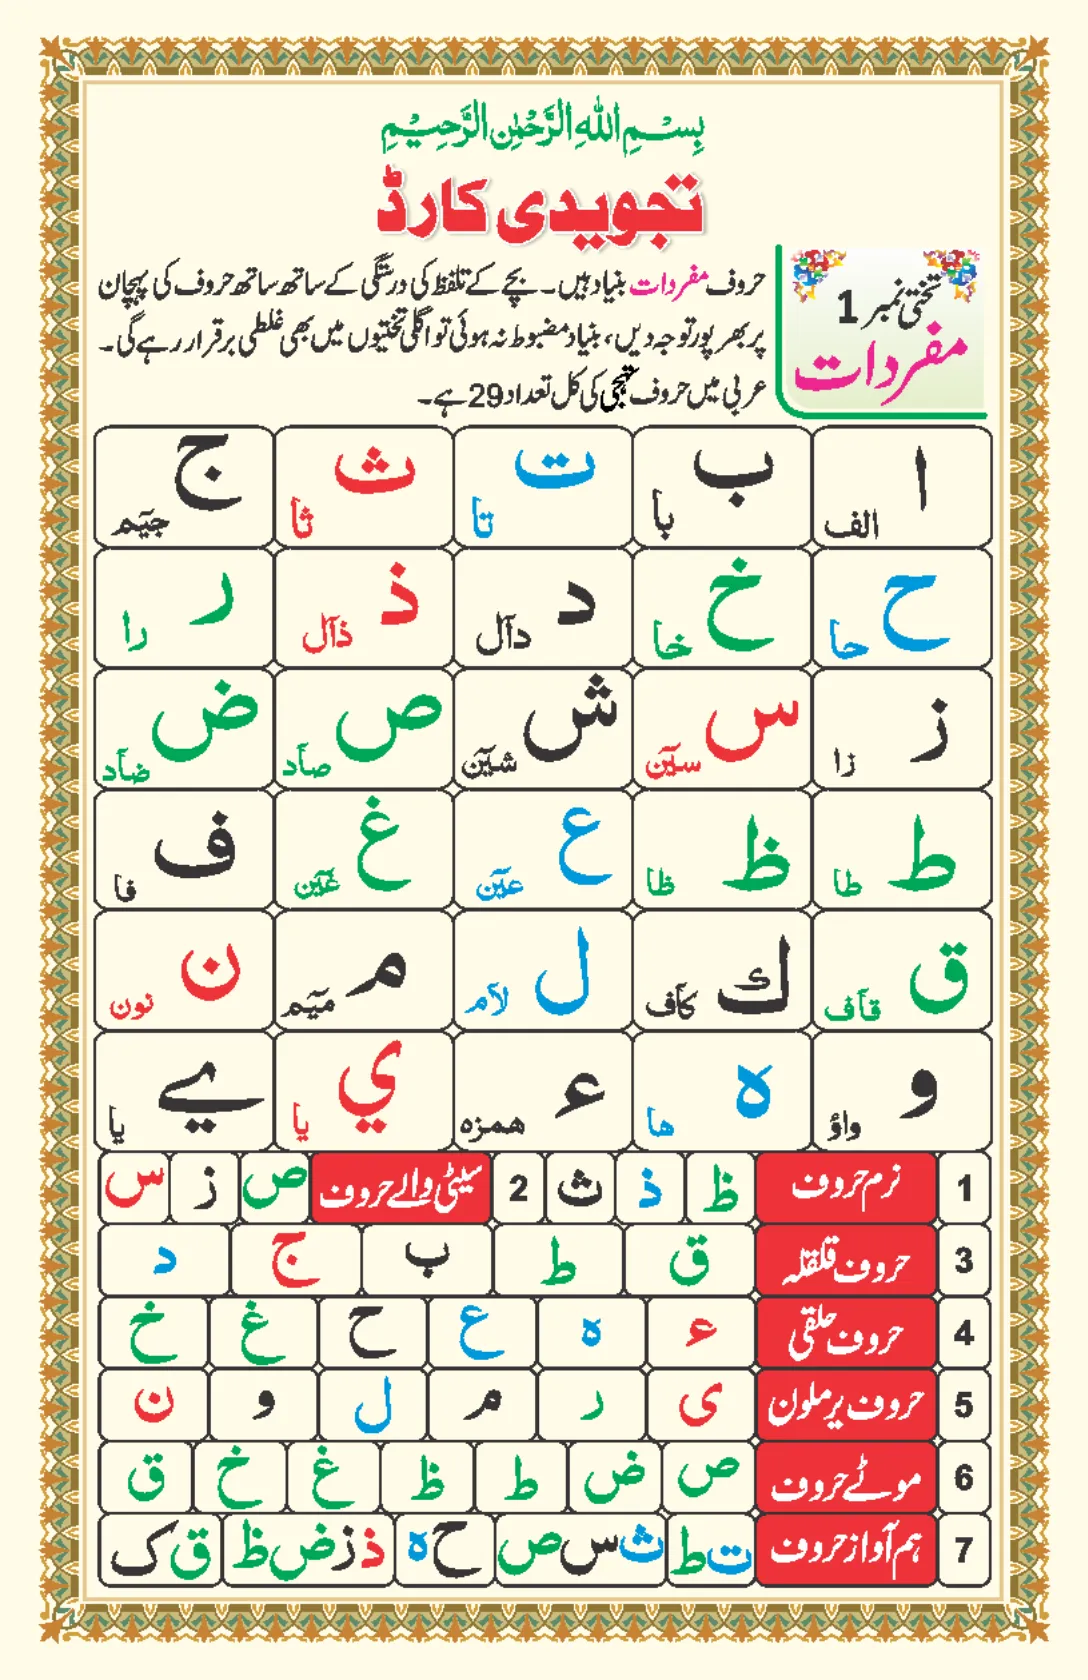 بِسْمِ اللهِ الرَّحْمٰنِ الرَّحِيْمِ
تجویدی کارڈ
تختی نمبر 1
مفردات
حروف مفردات بنیاد ہیں۔ بچے کے تلفظ کی درستگی کے ساتھ ساتھ حروف کی پہچان
پر بھرپور توجہ دیں، بنیاد مضبوط نہ ہوئی تو اگلی تختیوں میں بھی غلطی برقرار رہے گی۔
عربی میں حروف تہجی کی کل تعداد 29 ہے۔
ا الف ب با ت تا ث ثا ج جیٓم
ح حا خ خا د دآل ذ ذآل ر را
ز زا س سیٓن ش شیٓن ص صآد ض ضآد
ط طا ظ ظا ع عیٓن غ غیٓن ف فا
ق قآف ك کآف ل لآم م میٓم ن نون
و واؤ ہ ھا ء ھمزہ ي یا ے یا
1 نرم حروف ظ ذ ث 2 سیٹی والے حروف ص ز س
3 حروف قلقلہ ق ط ب ج د
4 حروف حلقی ء ہ ع ح غ خ
5 حروف یرملون ی ر م ل و ن
6 موٹے حروف ص ض ط ظ غ خ ق
7 ہم آواز حروف ت ط ث س ص ح ہ ذ ز ض ظ ق ک